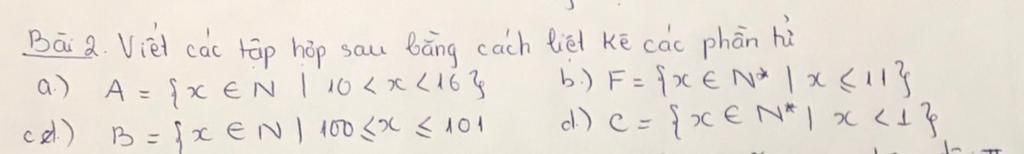 Bài 2. Viết các tập hợp sau bằng cách liệt kê các phần tử
a.) A = {x ∈ N | 10 < x < 16} b.) F = {x ∈ N* | x ≤ 11}
c.) B = {x ∈ N | 100 ≤ x ≤ 101 d.) C = {x ∈ N* | x < 1}